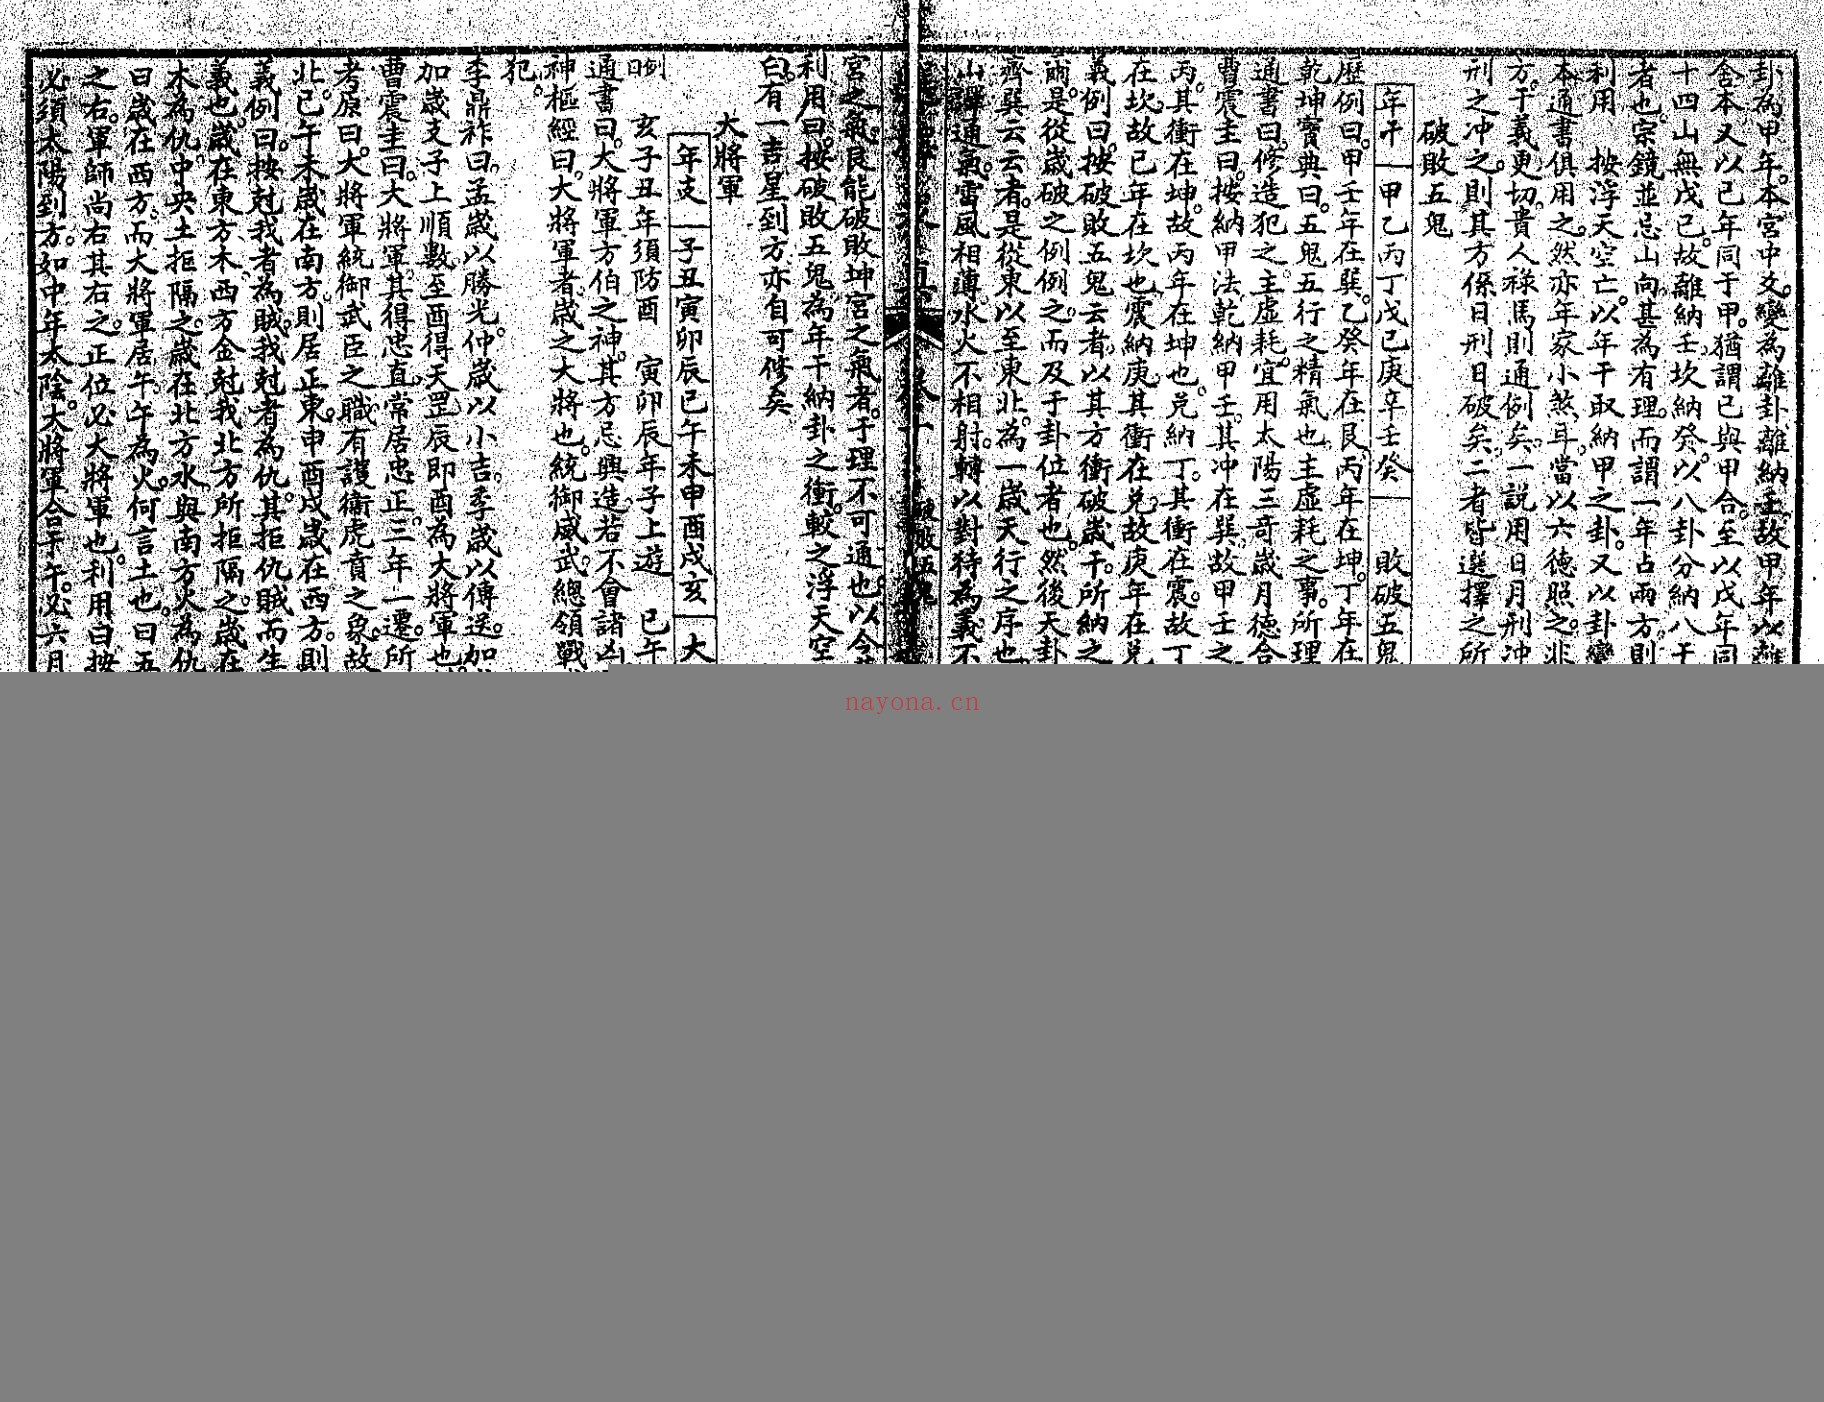 卦為甲年本宮中爻變為離卦離納壬故甲年以離
舍本又以己年同于甲猶謂己與甲合至以戊年同
十四山無戊己故離納壬坎納癸以八卦分納八干
者也宗鏡並忌山向甚為有理而謂一年占兩方則
利用　按浮天空亡以年干取納甲之卦又以卦變
本通書俱用之然亦年家小煞耳當以六德照之非
方干義更切貴人祿馬則通例矣一說用日月刑冲
刑之冲之則其方係日刑日破矣二者皆選擇之所
破敗五鬼
年干　甲乙丙丁戊己庚辛壬癸　敗破五鬼
歷例曰甲壬年在巽乙癸年在艮丙年在坤丁年在
乾坤寶典曰五鬼五行之精氣也主虛耗之事所理
通書曰修造犯之主虛耗宜用太陽三奇歲月德合
曹震圭曰按納甲法乾納甲壬其冲在巽故甲壬之
丙其衝在坤故丙年在坤也兌納丁其衝在震故丁
在坎故己年在坎也震納庚其衝在兌故庚年在兌
義例曰按破敗五鬼云者以其方衝破歲干所納之
爾是從歲破之例例之而及于卦位者也然後天卦
齊巽云云者是從東以至東北為一歲天行之序也
山澤通氣雷風相薄水火不相射轉以對待為義不
破敗五鬼
宮之氣艮能破敗坤宮之氣者于理不可通也以今
利用曰按破敗五鬼為年干納卦之衝較之浮天空
曰有一吉星到方亦自可修矣
大將軍
年支　子丑寅卯辰巳午未申酉戌亥　大
亥子丑年須防酉　寅卯辰年子上遊　巳午
例曰
通書曰大將軍方伯之神其方忌興造若不會諸凶
神樞經曰大將軍者歲之大將也統御威武總領戰
犯
李鼎祚曰孟歲以勝光仲歲以小吉季歲以傳送加
加歲支子上順數至酉得天罡辰即酉為大將軍也
曹震圭曰大將軍其得忠直常居忠正三年一遷所
考原曰大將軍統御武臣之職有護衛虎賁之象故
北巳午未歲在南方則居正東申酉戌歲在西方則
義例曰按尅我者為賊我尅者為仇其拒仇賊而生
義也歲在東方木西方金尅我北方所拒隔之歲在
木為仇中央土拒隔之歲在北方水與南方火為仇
曰歲在西方而大將軍居午午為火何言土也曰五
之右軍師尚右其右之正位必大將軍也利用曰按
必須太陽到方如中年太陰大將軍合于午必六月